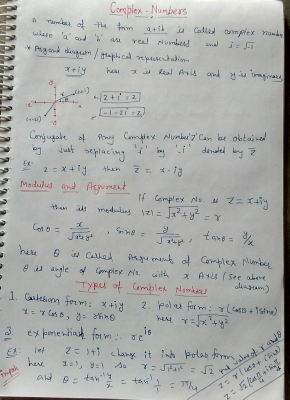 Complex-Numbers
a number of the form a+ib is called complex number
where 'a' and 'b' are real Numbers and i=√i
* Argand diagram / graphical representation
x+iy here x is Real Axis and y is imaginary
2+i=2
-1-2i=2
Conjugate of Any Complex Number 'z' Can be obtained
by Just replacing 'i' by '-i' denoted by z̅
Ex: z=x+iy then z̅ = x-iy
Modulus and Argument
if Complex No. is Z=x+iy
then its modulus |z|=√x²+y² = r
Cosθ = x/√x²+y² , sinθ = y/√x²+y² , tanθ = y/x
here θ is Called Arguments of Complex Number
θ is angle of Complex No. with x Axis (See above
diagram)
Types of Complex Numbers
1. Cartesian form: x+iy 2. polar form: r(cosθ+isinθ)
x=rcosθ, y=rsinθ here r=√x²+y²
3. exponential form: re^iθ
Ex: let Z=1+i change it into polar form,
here x=1, y=1 so r=√1+1=√2
and θ=tan⁻¹ y/x = tan⁻¹ 1/1 = π/4
of r and θ
z=r(cosθ+isinθ)
z=√2(cos π/4+isin π/4)